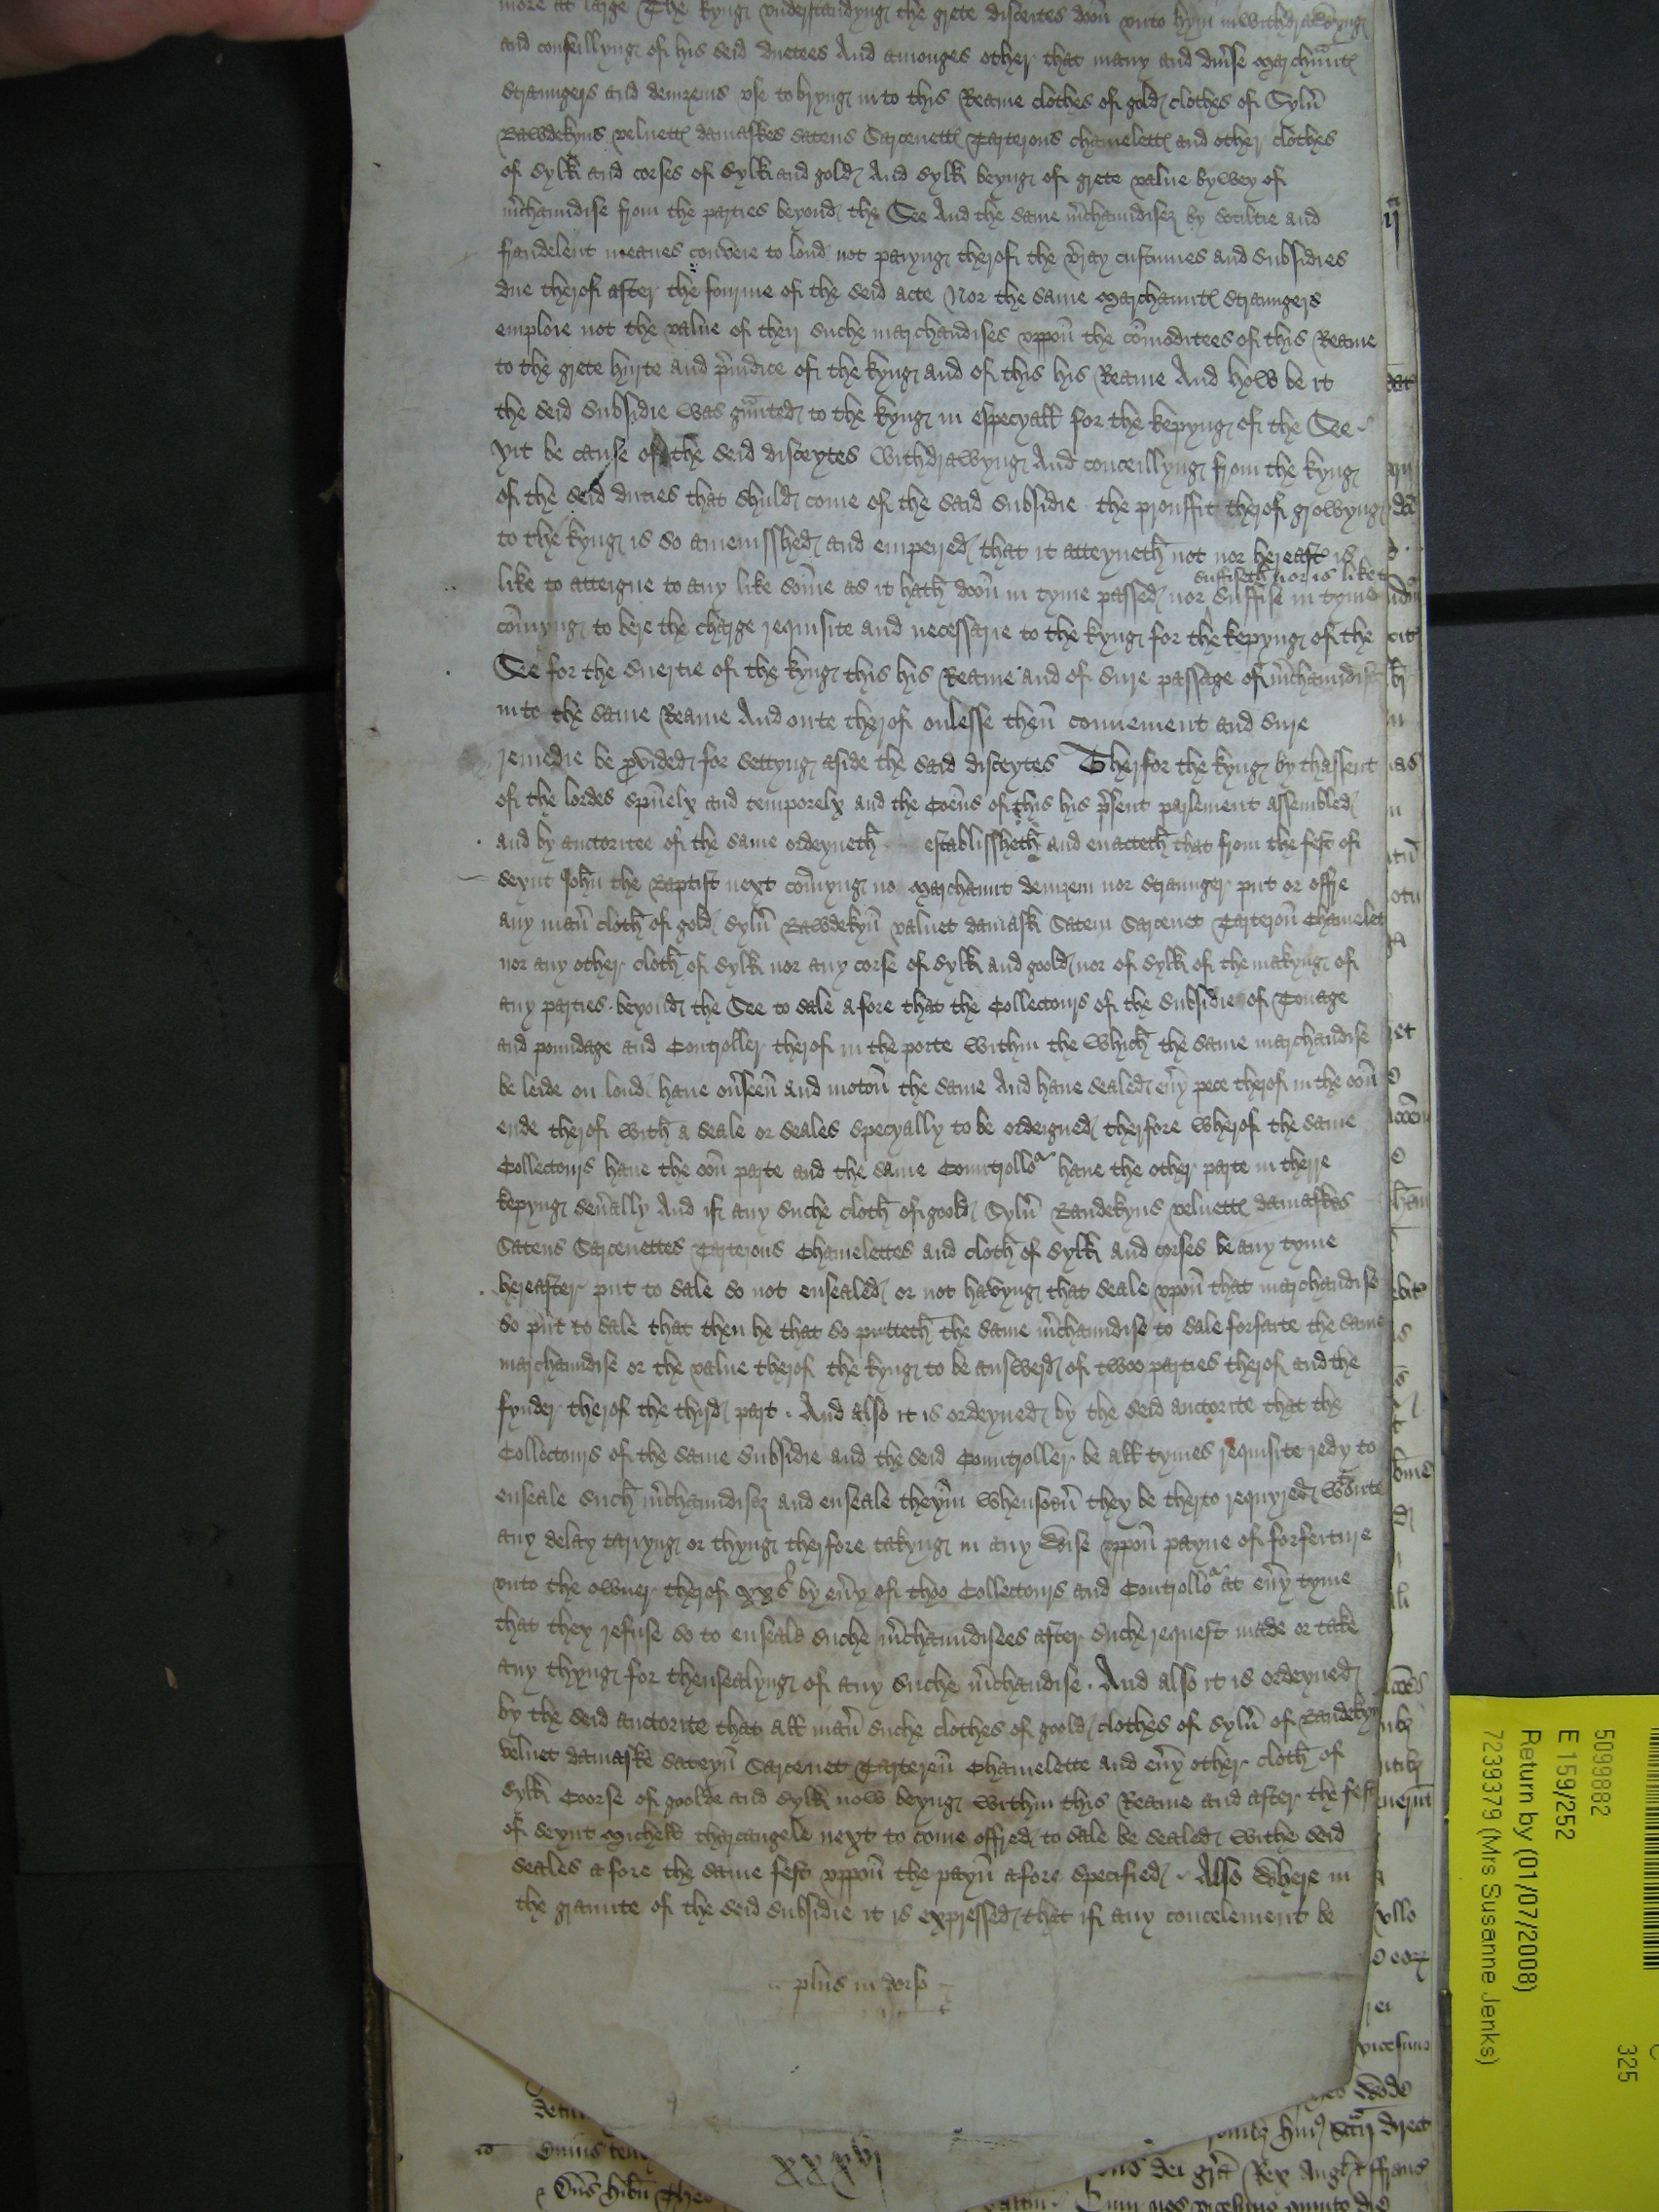 more at large The kyng understandyng the grete disceites doon unto hym in withdrawyng
and conseillyng of his seid duetees And amonges other that many and divse marchauntes
straungers and deinzeins use to bryng in to this Reame clothes of gold clothes of Sylv
Bawdekyns veluettes damaskes satens Sarcenettes Tarterons chamelettes and other clothes
of sylk and corses of sylk and gold And sylk beyng of grete value by wey of
mchaundise from the parties beyond the See And the same mchaundisez by sotiltie and
fraudelent meanes conveie to lond not payyng therof the vray custumes and subsidies
due therof after the fourme of the seid acte Nor the same marchauntes straungers
emploie not the value of their suche marchandises uppon the comoditees of this Reame
to the grete hurte and prudice of the kyng and of this his Reame And how be it
the seid subsidie was graunted to the kyng in especyall for the kepyng of the See
yit be cause of the seid disceytes withdrawyng And conceillyng from the kyng
of the seid duties that shuld come of the said subsidie the prouffit therof growyng
to the kyng is so amenisshed and empeired that it atteyneth not nor hereaft is
suffiseth nor is like
like to atteigne to any like some as it hath doon in tyme passed nor suffise in tyme
comyng to bere the charge requisite and necessarie to the kyng for the kepyng of the
See for the suertie of the kyng this his Reame and of sure passage of mchaundis
in to the same Reame And oute therof onlesse then convenient and sure
remedie be provided for settyng aside the said disceytes Therfor the kyng by thassent
of the lordes spuelx and temporelx and the Coens of this his psent parlement assembled
and by auctoritee of the same ordeyneth establissheth and enacteth that from the fest of
seynt John the Baptist next comyng no marchaunt deinzein nor straunger put or offre
any man cloth of gold sylv Bawdekyn valuet damask Satein Sarcenet Tarteron Chamelet
nor any other cloth of sylk nor any corse of sylk and goold nor of sylk of the makyng of
any parties beyond the See to sale afore that the Collectours of the subsidie of Tonage
and poundage and Controller therof in the porte within the which the same marchandise
be leide on lond have onseen and moton the same And have sealed evy pece therof in the oon
ende therof with a seale or seales specyally to be ordeigned therfore wherof the same
Collectours have the oon parte and the same Countrollor have the other parte in theire
kepyng sevally And if any suche cloth of goold Sylv Baudekyns veluettes damaskes
Satens Sarcenettes Tarterons Chamelettes and cloth of sylk and corses be any tyme
hereafter put to sale so not ensealed or not havyng that seale upon that marchandise
so put to sale that then he that so putteth the same mchaundise to sale forfaite the same
marchaundise or the value therof the kyng to be answerd of twoo parties therof and the
fynder therof the third part And also it is ordeyned by the seid auctorite that the
Collectours of the same subsidie and the seid Countroller be all tymes requisite redy to
enseale such mchaundisez and enseale theym whensoev they be therto requyred wtoute
any delay taryyng or thyng therfore takyng in any wise uppon payne of forfeiture
unto the owner therof xx s by evy of thoo Collectours and Controllor at evy tyme
that they refuse so to enseale suche mchaundisees after suche request made or take
any thyng for thensealyng of any suche mchandise And also it is ordeyned
by the seid auctorite that all man suche clothes of goold clothes of sylv of Baudekyn
veluet damaske sateyn Sarcenet Tarteron Chamelette and evy other cloth of
sylk Coorse of goolde and sylk now beyng within this Reame and after the fest
of seynt Michell tharcangele next to come offred to sale be sealed withe seid
seales afore the same fest uppon the payn afore specified Also where in
the graunte of the seid subsidie it is expressed that if any concelement be
plus in dorso
xxxvj
dei gra Rex Angl
5099882
E 159/252
Return by (01/07/2008)
7239379 (Mrs Susanne Jenks)
325